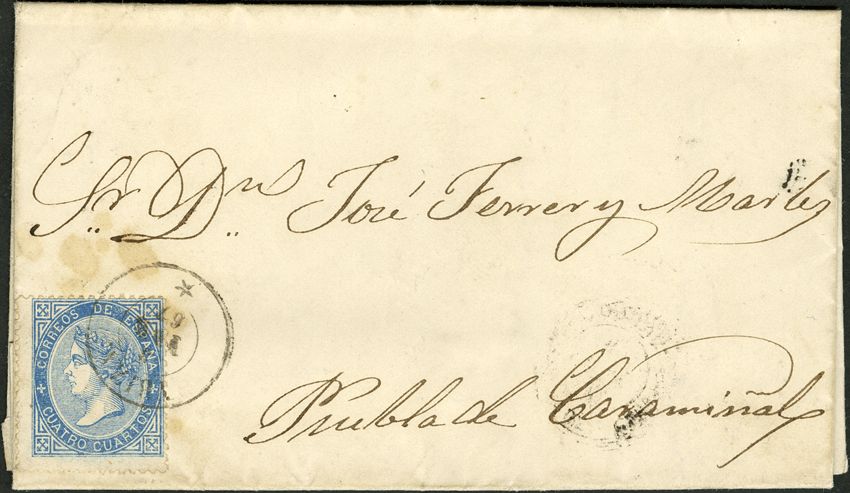 Sr. Dn. José Ferrer y
Puebla de Caramiñal
CORREOS DE ESPAÑA
CUATRO CUARTOS
67